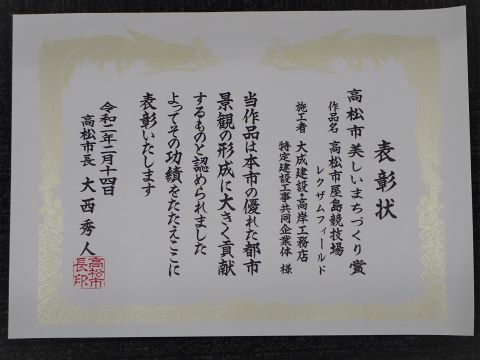 表彰状
高松市美しいまちづくり賞
作品名 高松市屋島競技場
レクザムフィールド
施工者 大成建設・高岸工務店
特定建設工事共同企業体 様
当作品は本市の優れた都市
景観の形成に大きく貢献
するものと認められました
よってその功績をたたえここに
表彰いたします
令和二年二月十四日
高松市長 大西秀人
高松市
長印